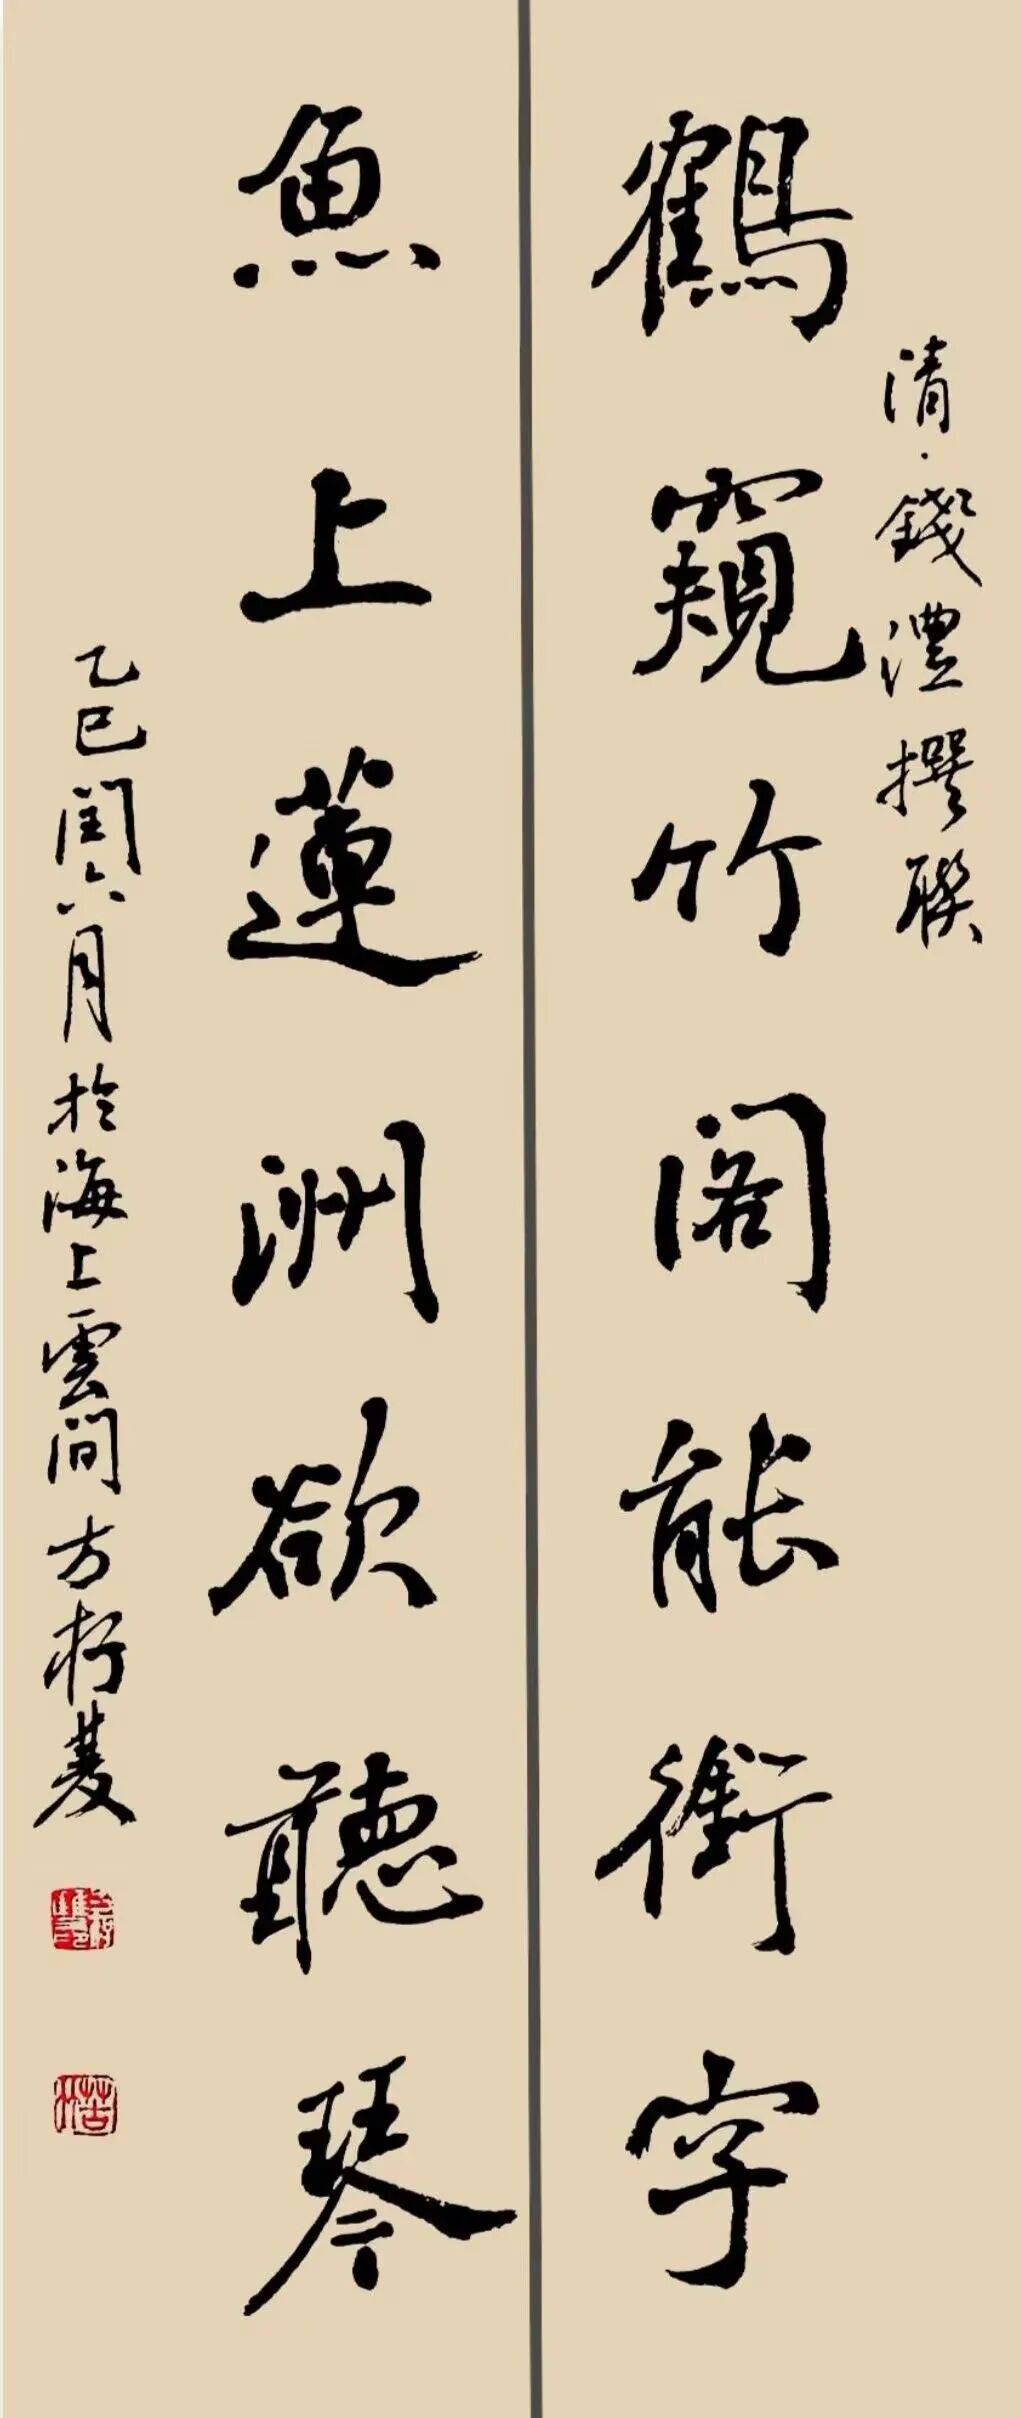 清·錢澧撰聯
鶴窺竹閣能銜字
魚上蓮洲欲聽琴
乙巳閏六月於海上雲間方杍葼